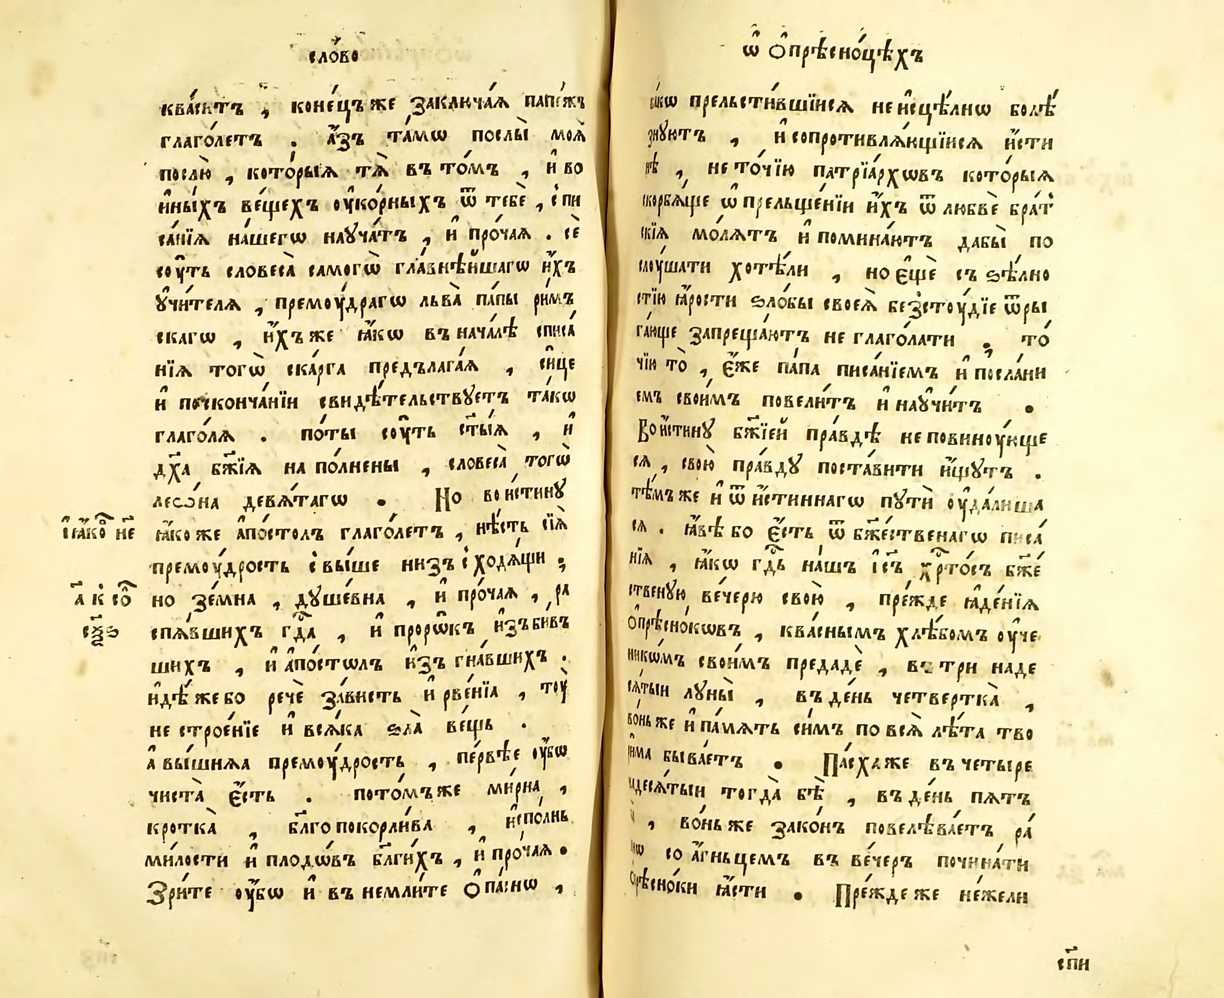 сло́во
ква́ситъ , коне́цъ же заключа́ѧ папе́жъ
глаго́летъ . а҆́зъ та́мѡ послы̀ моѧ̀
послю̀ , кото́рыѧ тѧ̀ въ то́мъ , и҆ во
и҆ны́хъ ве́щехъ ᲂу҆ко́рныхъ ѿ тебѐ , с̾пи
са́нїѧ на́шегѡ науча́тъ , и҆ про́чаѧ . сѐ
сᲂу́ть словеса̀ самогѡ̀ гла́внѣйшагѡ и҆́хъ
ᲂу҆чи́телѧ , премᲂу́драгѡ льва̀ па́пы ри́мъ
скагѡ , и҆́хъ же ꙗ҆́кѡ въ нача́лѣ списа́
нїѧ тогѡ̀ ска́рга предълага́ѧ , си́це
и҆ по сконча́нїи свидѣ́тельствуетъ та́кѡ
глаго́лѧ . по́ты сᲂу́ть ст҃ы́ѧ , и҆
дх҃а бж҃їѧ напо́лнены , словеса̀ тогѡ̀
леѡ́на девѧ́тагѡ . Но вои́стину
і҆а́кѡ не ꙗ҆́коже а҆по́столъ глаго́летъ , нѣ́сть сїѧ̀
премᲂу́дрость с̾вы́ше низъсходѧ́щи ;
а҃ к со̑ но зе́мна , дꙋше́вна , и҆ про́чаѧ , ра
спѧ́вшихъ гд҇а , и҆ прорѡ́къ и҆зъби́въ
шихъ , и҆ а҆по́стѡлъ и҆зъгна́вшихъ .
и҆дѣ́же бо речѐ за́висть и҆ рве́нїа , тᲂу̀
не строе́нїе и҆ всѧ́ка ѕла̀ ве́щь .
а҆ вы́шнѧѧ премᲂу́дрость , пе́рвѣе ᲂу҆́бѡ
чиста̀ є҆́сть . пото́мъ же ми́рна ,
кротка̀ , бл҃гопокорли́ва , и҆спо́лнь
ми́лости и҆ плодѡ́въ бл҃ги́хъ , и҆ про́чаѧ .
Зри́те ᲂу҆́бѡ и҆ вънемли́те ѻ҆па́снѡ ,
ѡ҆ ѻ҆прѣсно́цѣхъ
ꙗ҆́кѡ прельсти́вшїисѧ неисцѣ́лнѡ болѣ́
знуютъ , и҆ сопротивлѧ́ющїисѧ и҆́сти
нѣ , не то́чїю патрїа́рхѡвъ кото́рыѧ
скорбѧ́ще ѡ҆ прельще́нїи и҆́хъ ѿ любвѐ бра́т
скїѧ мо́лѧтъ и҆ помина́ютъ дабы̀ по
слᲂушати хотѣ́ли , но є҆щѐ съ ѕѣ́лно
стїю ꙗ҆́рости ѕло́бы своеѧ̀ безстᲂу́дїе ѿры
га́юще запреща́ютъ не глаго́лати . то́
чїю то̀ , є҆́же па́па писа́нїемъ и҆ посла́ни
емъ свои́мъ повели́тъ и҆ нау́читъ .
Вои́стину бж҃їей пра́вдѣ не повинᲂу́юще
сѧ , свою̀ пра́вду поста́вити и҆́щутъ .
тѣ́мъ же и҆ ѿ и҆́стиннагѡ путѝ ᲂу҆дали́ша
сѧ . ꙗ҆́вѣ бо є҆́сть ѿ бж҃е́ственагѡ писа́
нїѧ , ꙗ҆́кѡ гд҇ь на́шъ і҆с҃ъ хрⷭ҇то́съ бж҃е́
ственую вече́рю свою̀ , пре́жде ꙗ҆де́нїѧ
ѻ҆прѣсно́кѡвъ , ква́снымъ хлѣ́бомъ ᲂу҆че
никѡ́мъ свои́мъ предадѐ , въ три наде
сѧ́тыи луны̀ , въ де́нь четвертка̀ ,
во́ньже и҆ па́мѧть си́мъ по всѧ̀ лѣ́та тво
ри́ма быва́етъ . Па́сха же въ четыре
надесѧ́тыи тогда̀ бѣ̀ , въ де́нь пѧ́тъ
, во́ньже зако́нъ повелѣва́етъ ра́
нѡ со а҆́гньцемъ въ ве́черъ почина́ти
ѻ҆прѣсно́ки ꙗ҆́сти . Пре́жде же не́жели
сп҃и